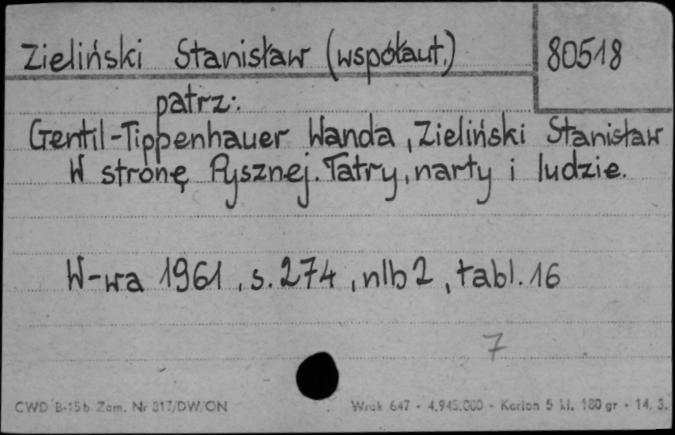 Zieliński Stanisław (współaut.) 80518
patrz:
Gentil-Tippenhauer Wanda, Zieliński Stanisław
W stronę Pysznej. Tatry, narty i ludzie.
W-wa 1961, s. 274, nlb 2, tabl. 16
7
CWD B-15b Zam. Nr 317/DW/ON Wrak 647 - 4.945.000 - Karton 5 kl. 180 gr - 14. 3.